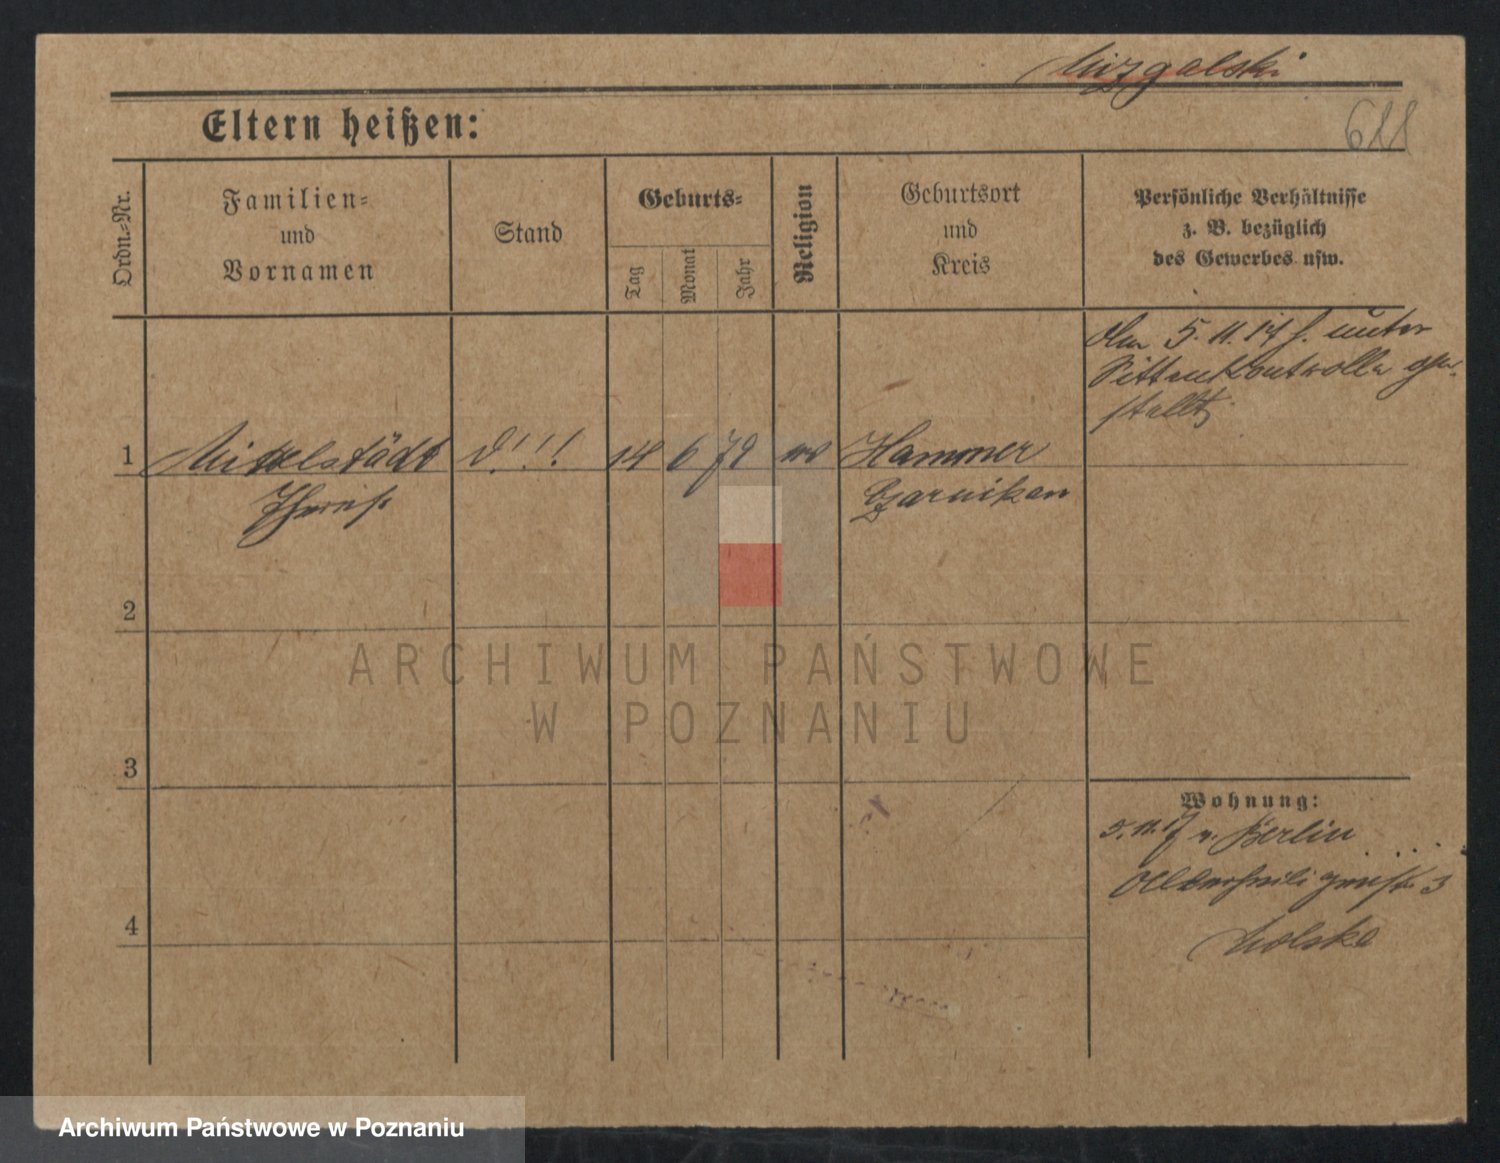 Mizgalski
Eltern heißen:
688
Ordn.-Nr.
Familien-
und
Vornamen
Stand
Geburts-
Tag
Monat
Jahr
Religion
Geburtsort
und
Kreis
Persönliche Verhältnisse
z. B. bezüglich
des Gewerbes usw.
5. 11. 17 unter
Sittenkontrolle ge-
stellt
1
Mittelstädt
D!!!
14
6
72
Hammer
Czarnikau
2
3
4
ARCHIWUM PAŃSTWOWE
W POZNANIU
Wohnung:
5. 11. 17 v. Berlin
Allerheiligenstr. 3
Archiwum Państwowe w Poznaniu